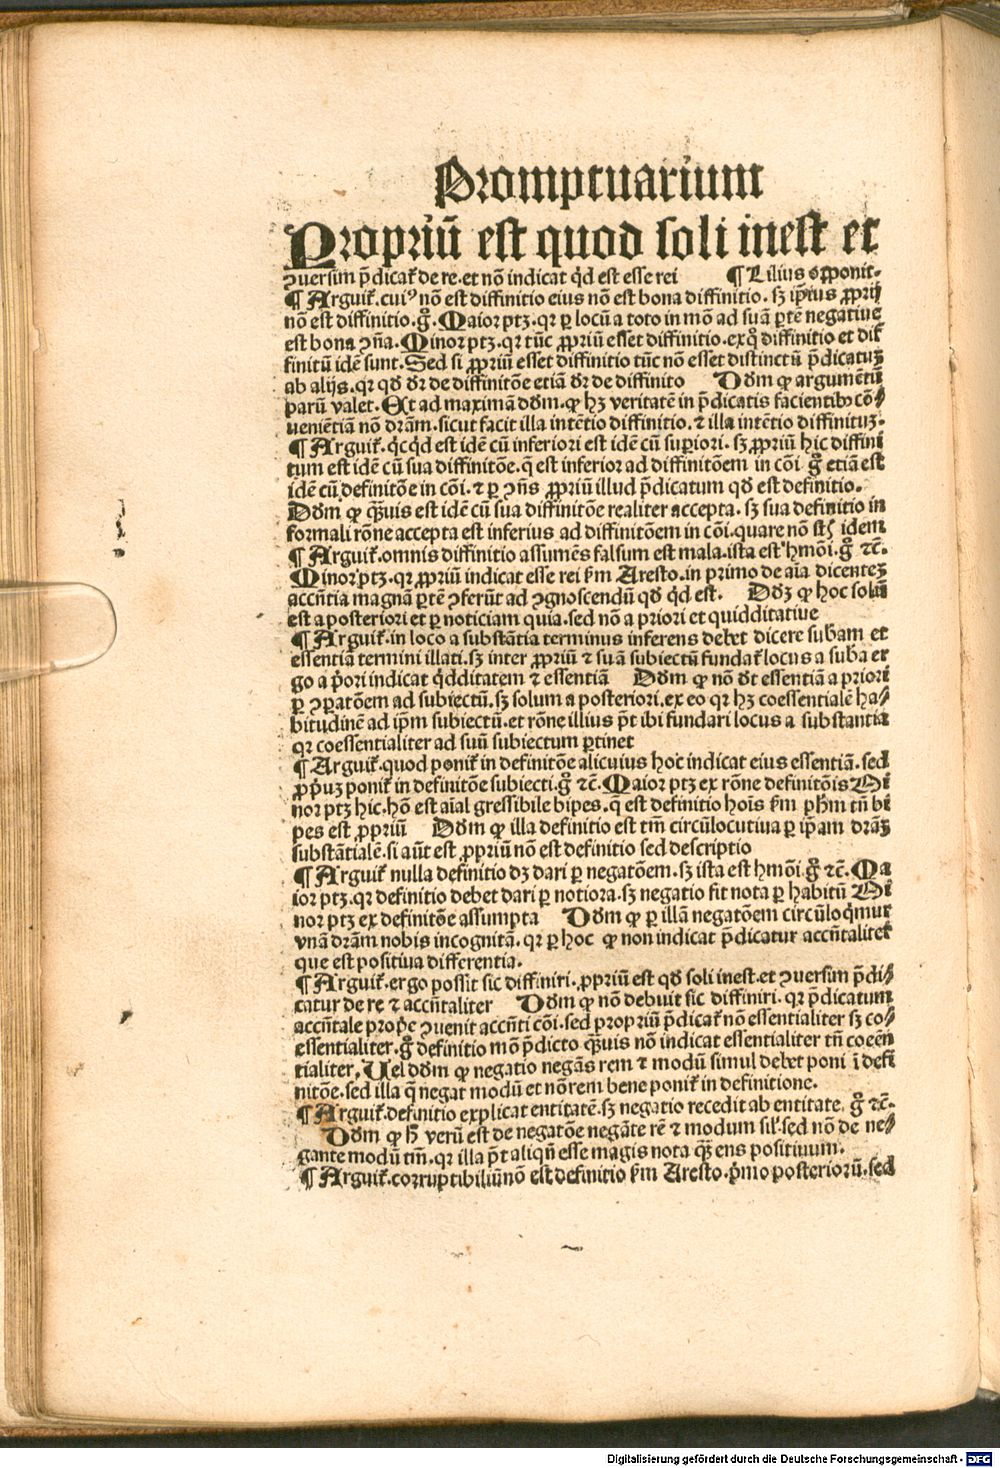 Promptuarium
Propriū est quod soli inest et
ꝯuersim p̄dicat᷑ de re. et nō indicat qd̓ est esse rei ¶ Lilius opponit.
¶ Arguit᷑. cuiꝰ nō est diffinitio eius nō est bona diffinitio. sꝫ ip̄ius ꝓprij
nō est diffinitio. gͦ. Maior ptꝫ. qꝛ ꝑ locū a toto in mō ad suā ꝑtē negatiue
est bona ꝯña. Minor ptꝫ. qꝛ tūc ꝓpriū esset diffinitio. ex qͦ diffinitio et dif
finitū idē sunt. Sed si ꝓpriū esset diffinitio tūc nō esset distinctū p̄dicatuꝫ
ab alijs. qꝛ qd̓ dr̄ de diffinitōe etiā dr̄ de diffinito Dd̓m ꝙ argumētū
parū valet. Et ad maximā dd̓m. ꝙ hꝫ veritatē in p̄dicatis facientibꝰ cō⸗
uenientiā nō dr̄am. sicut facit illa intētio diffinitio. ⁊ illa intētio diffinituꝫ.
¶ Arguit᷑. qͥcqͥd est idē cū inferiori est idē cū suꝑiori. sꝫ ꝓpriū hic diffini
tum est idē cū sua diffinitōe. q̄ est inferior ad diffinitōem in cōi. gͦ etiā est
idē cū definitōe in cōi. ⁊ ꝑ ꝯñs ꝓpriū illud p̄dicatum qd̓ est definitio.
Dd̓m ꝙ qᷓuis est idē cū sua diffinitōe realiter accepta. sꝫ sua definitio in
formali rōne accepta est inferius ad diffinitōem in cōi. quare nō idem
¶ Arguit᷑. omnis diffinitio assumēs falsum est mala. ista est hmōi. gͦ ⁊c̄.
Minor ptꝫ. qꝛ ꝓpriū indicat esse rei ẜm Aresto. in primo de aīa dicenteꝫ
accñtia magnā ꝑtē ꝯferūt ad ꝯgnoscendū qd̓ qͥd est. Dd̓ꝫ ꝙ hoc solū
est a posteriori et ꝑ noticiam quia. sed nō a priori et quidditatiue
¶ Arguit᷑. in loco a substātia terminus inferens debet dicere sub̄am et
essentiā termini illati. sꝫ inter ꝓpriū ⁊ suā subiectū fundat᷑ locus a sub̄a er
go a p̄ori indicat qͥdditatem ⁊ essentiā Dd̓m ꝙ nō dt̄ essentiā a priori
ꝑ ꝯꝑatōem ad subiectū. sꝫ solum a posteriori. ex eo qꝛ hꝫ coessentialē ha⸗
bitudinē ad ip̄m subiectū. et rōne illius p̄t ibi fundari locus a substantia
qꝛ coessentialiter ad suū subiectum ꝑtinet
¶ Arguit᷑. quod ponit᷑ in definitōe alicuius hoc indicat eius essentiā. sed
ꝓpͥuꝫ ponit᷑ in definitōe subiecti. gͦ ⁊c̄. Maior ptꝫ ex rōne definitōis Mi
nor ptꝫ hic. hō est aīal gressibile bipes. q̄ est definitio hoīs ẜm ph̄m tn̄ bi
pes est ꝓpriū Dd̓m ꝙ illa definitio est tm̄ circūlocutiua ꝑ ip̄am dr̄aꝫ
substātialē. si aūt est ꝓpriū nō est definitio sed descriptio
¶ Arguit᷑ nulla definitio dꝫ dari ꝑ negatōem. sꝫ ista est hmōi. gͦ ⁊c̄. Ma
ior ptꝫ. qꝛ definitio debet dari ꝑ notiora. sꝫ negatio fit nota ꝑ habitū Mi
nor ptꝫ ex definitōe assumpta Dd̓m ꝙ ꝑ illā negatōem circūloqͥmur
vnā dr̄am nobis incognitā. qꝛ ꝑ hoc ꝙ non indicat p̄dicatur accñtaliter
que est positiua differentia.
¶ Arguit᷑. ergo possit sic diffiniri. ꝓpriū est qd̓ soli inest. et ꝯuersim p̄di⸗
catur de re ⁊ accñtaliter Dd̓m ꝙ nō debuit sic diffiniri. qꝛ p̄dicatum
accñtale ꝓpͥe ꝯuenit accñti cōi. sed propriū p̄dicat᷑ nō essentialiter sꝫ co⸗
essentialiter. gͦ definitio mō p̄dicto qᷓuis nō indicat essentialiter tn̄ coeēn
tialiter. Uel dd̓m ꝙ negatio negās rem ⁊ modū simul debet poni ī defi
nitōe. sed illa q̄ negat modū et nō rem bene ponit᷑ in definitione.
¶ Arguit᷑. definitio explicat entitatē. sꝫ negatio recedit ab entitate. gͦ ⁊c̄.
Dd̓m ꝙ h̄ verū est de negatōe negāte rē ⁊ modum sil̓. sed nō de ne⸗
gante modū tm̄. qꝛ illa p̄t aliqñ esse magis nota qᷓ ens positiuum.
¶ Arguit᷑. corruptibiliū nō est definitio ẜm Aresto. pͥmo posteriorū. sed
Digitalisierung gefördert durch die Deutsche Forschungsgemeinschaft - DFG